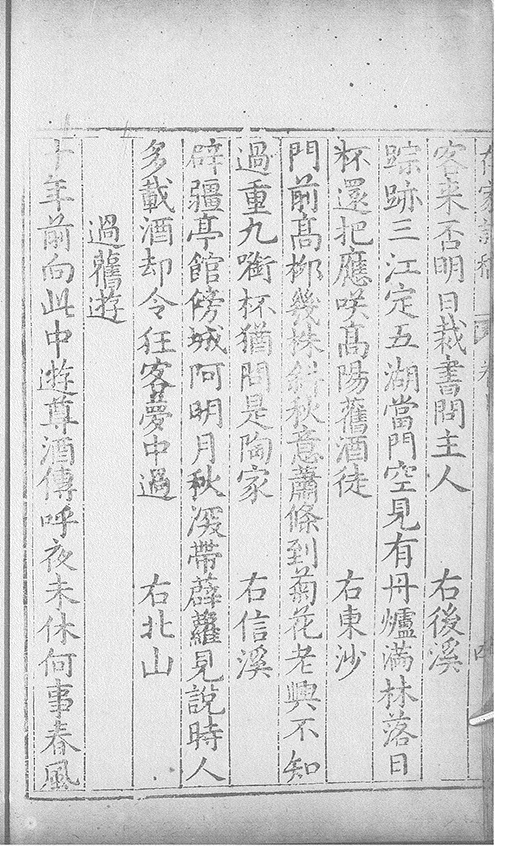 客来否明日裁書問主人　右後溪
踪跡三江定五湖當門空見有丹爐滿林落日
杯還把應咲髙陽舊酒徒　右東沙
門前髙柳幾株斜秋意蕭條到菊花老興不知
過重九嘞杯猶問是陶家　右信溪
辟疆亭館傍城阿明月秋深帶薜蘿見說時人
多載酒却令狂客夢中過　右北山
過舊遊
十年前向此中遊尊酒傳呼夜未休何事春風